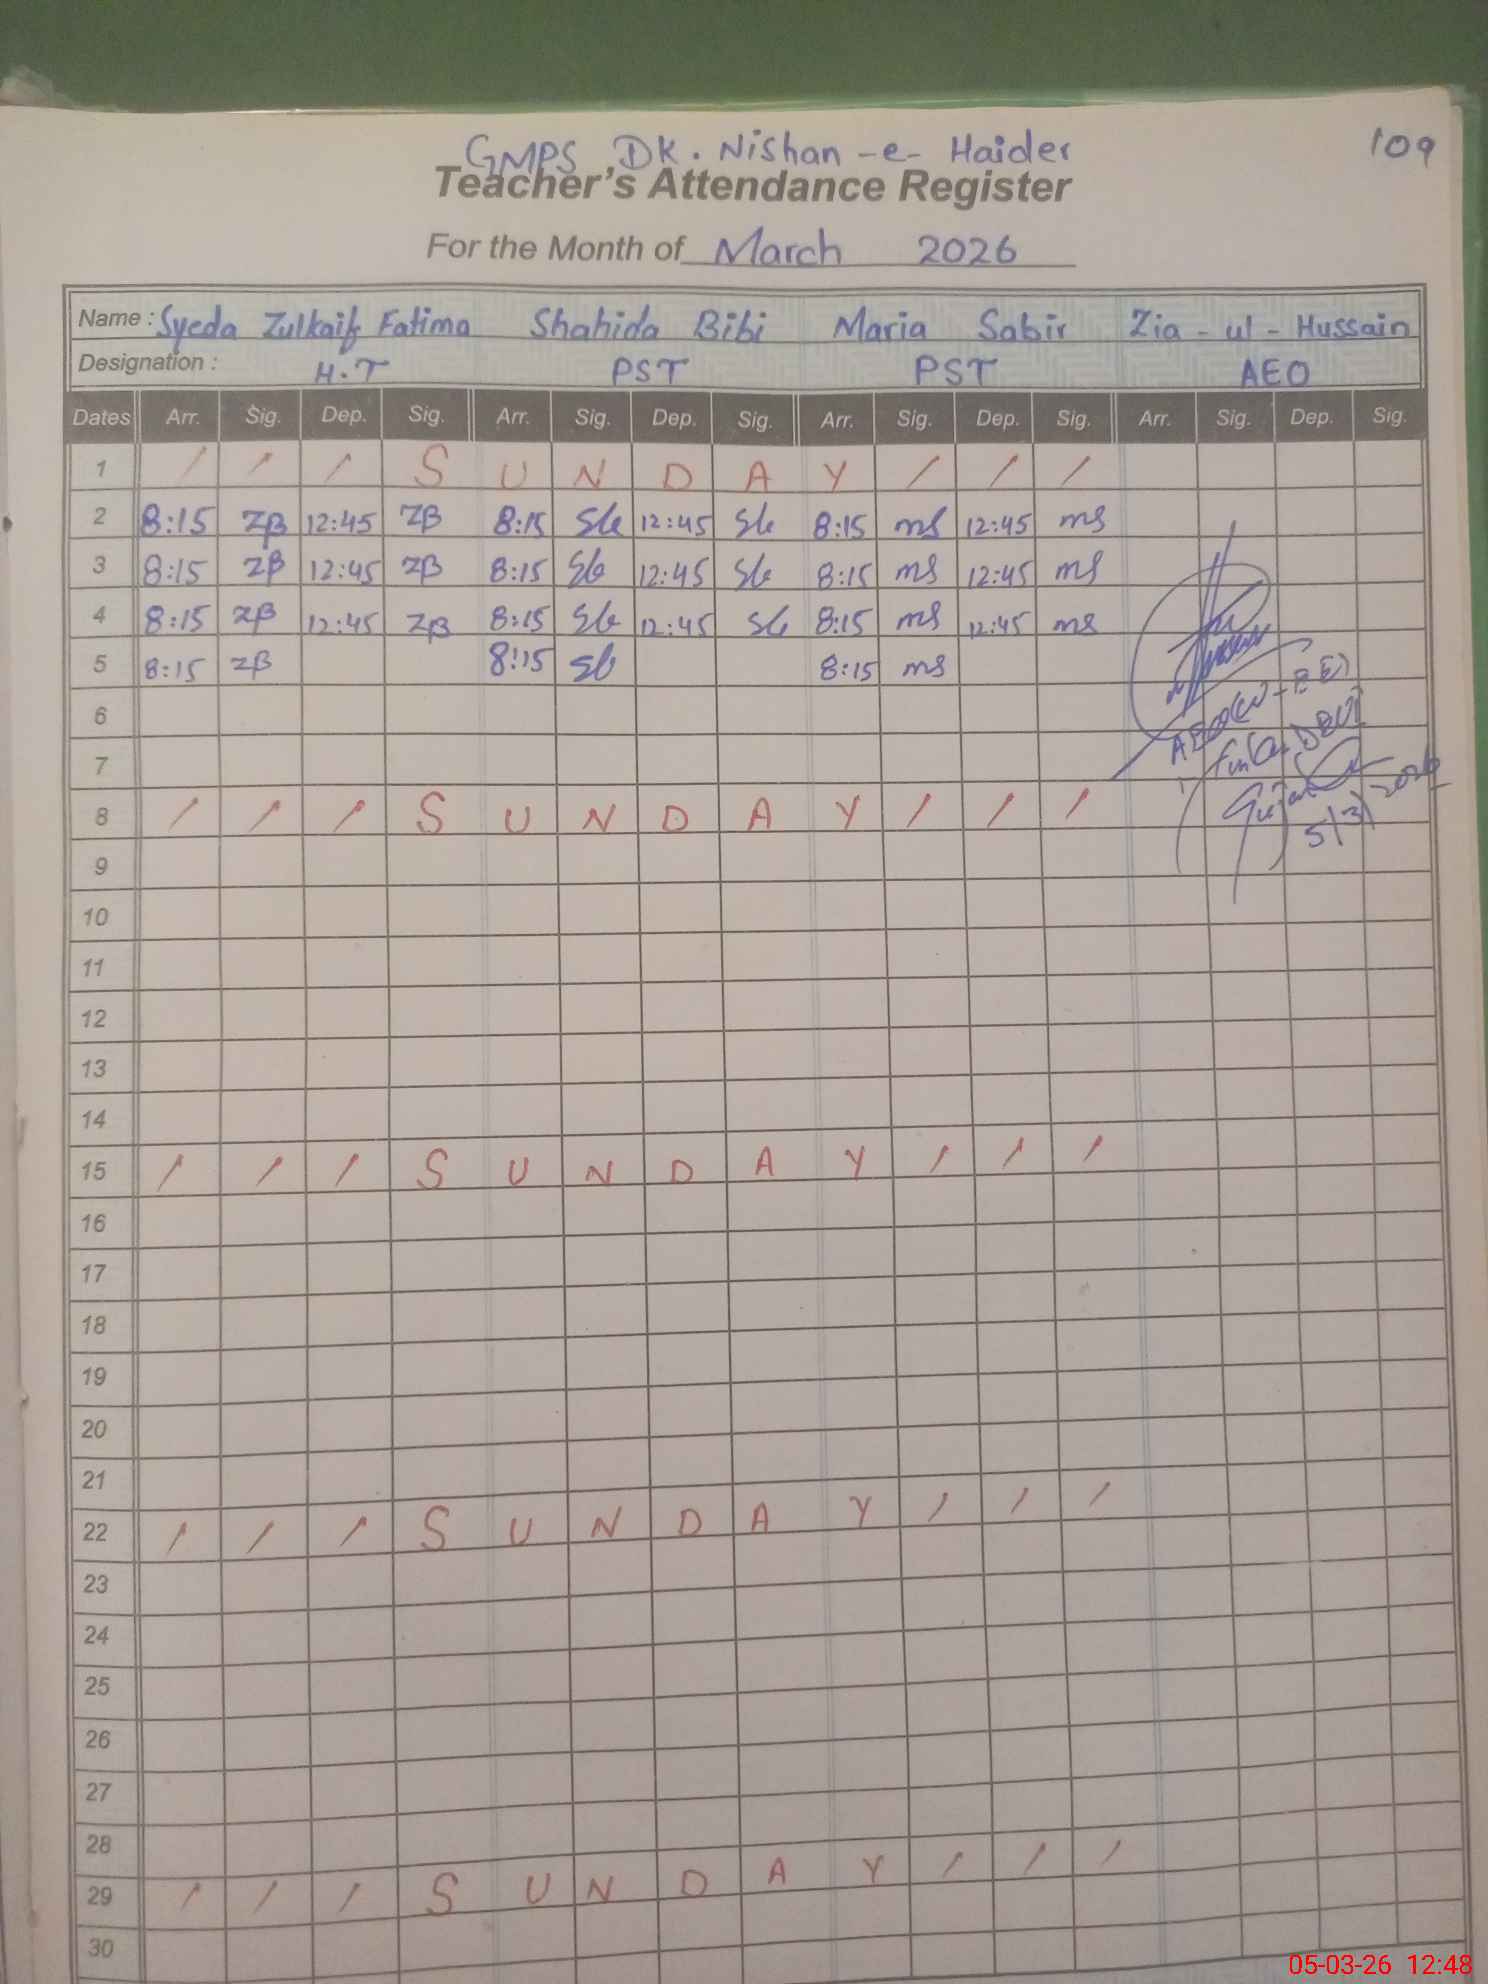 109
GMPS DK. Nishan-e-Haider
Teacher's Attendance Register
For the Month of March 2026
Name: Syeda Zulkaif Fatima Shahida Bibi Maria Sabir Zia-ul-Hussain
Designation: H.T PST PST AEO
Dates Arr. Sig. Dep. Sig. Arr. Sig. Dep. Sig. Arr. Sig. Dep. Sig. Arr. Sig. Dep. Sig.
1 / / / S U N D A Y / / /
2 8:15 ZB 12:45 ZB 8:15 Sb 12:45 Sb 8:15 ms 12:45 ms
3 8:15 ZB 12:45 ZB 8:15 Sb 12:45 Sb 8:15 ms 12:45 ms
4 8:15 ZB 12:45 ZB 8:15 Sb 12:45 Sb 8:15 ms 12:45 ms
5 8:15 ZB 8:15 Sb 8:15 ms
6
7
8 / / / S U N D A Y / / /
5/3/2026
9
10
11
12
13
14
15 / / / S U N D A Y / / /
16
17
18
19
20
21
22 / / / S U N D A Y / / /
23
24
25
26
27
28
29 / / / S U N D A Y / / /
30
05-03-26 12:48